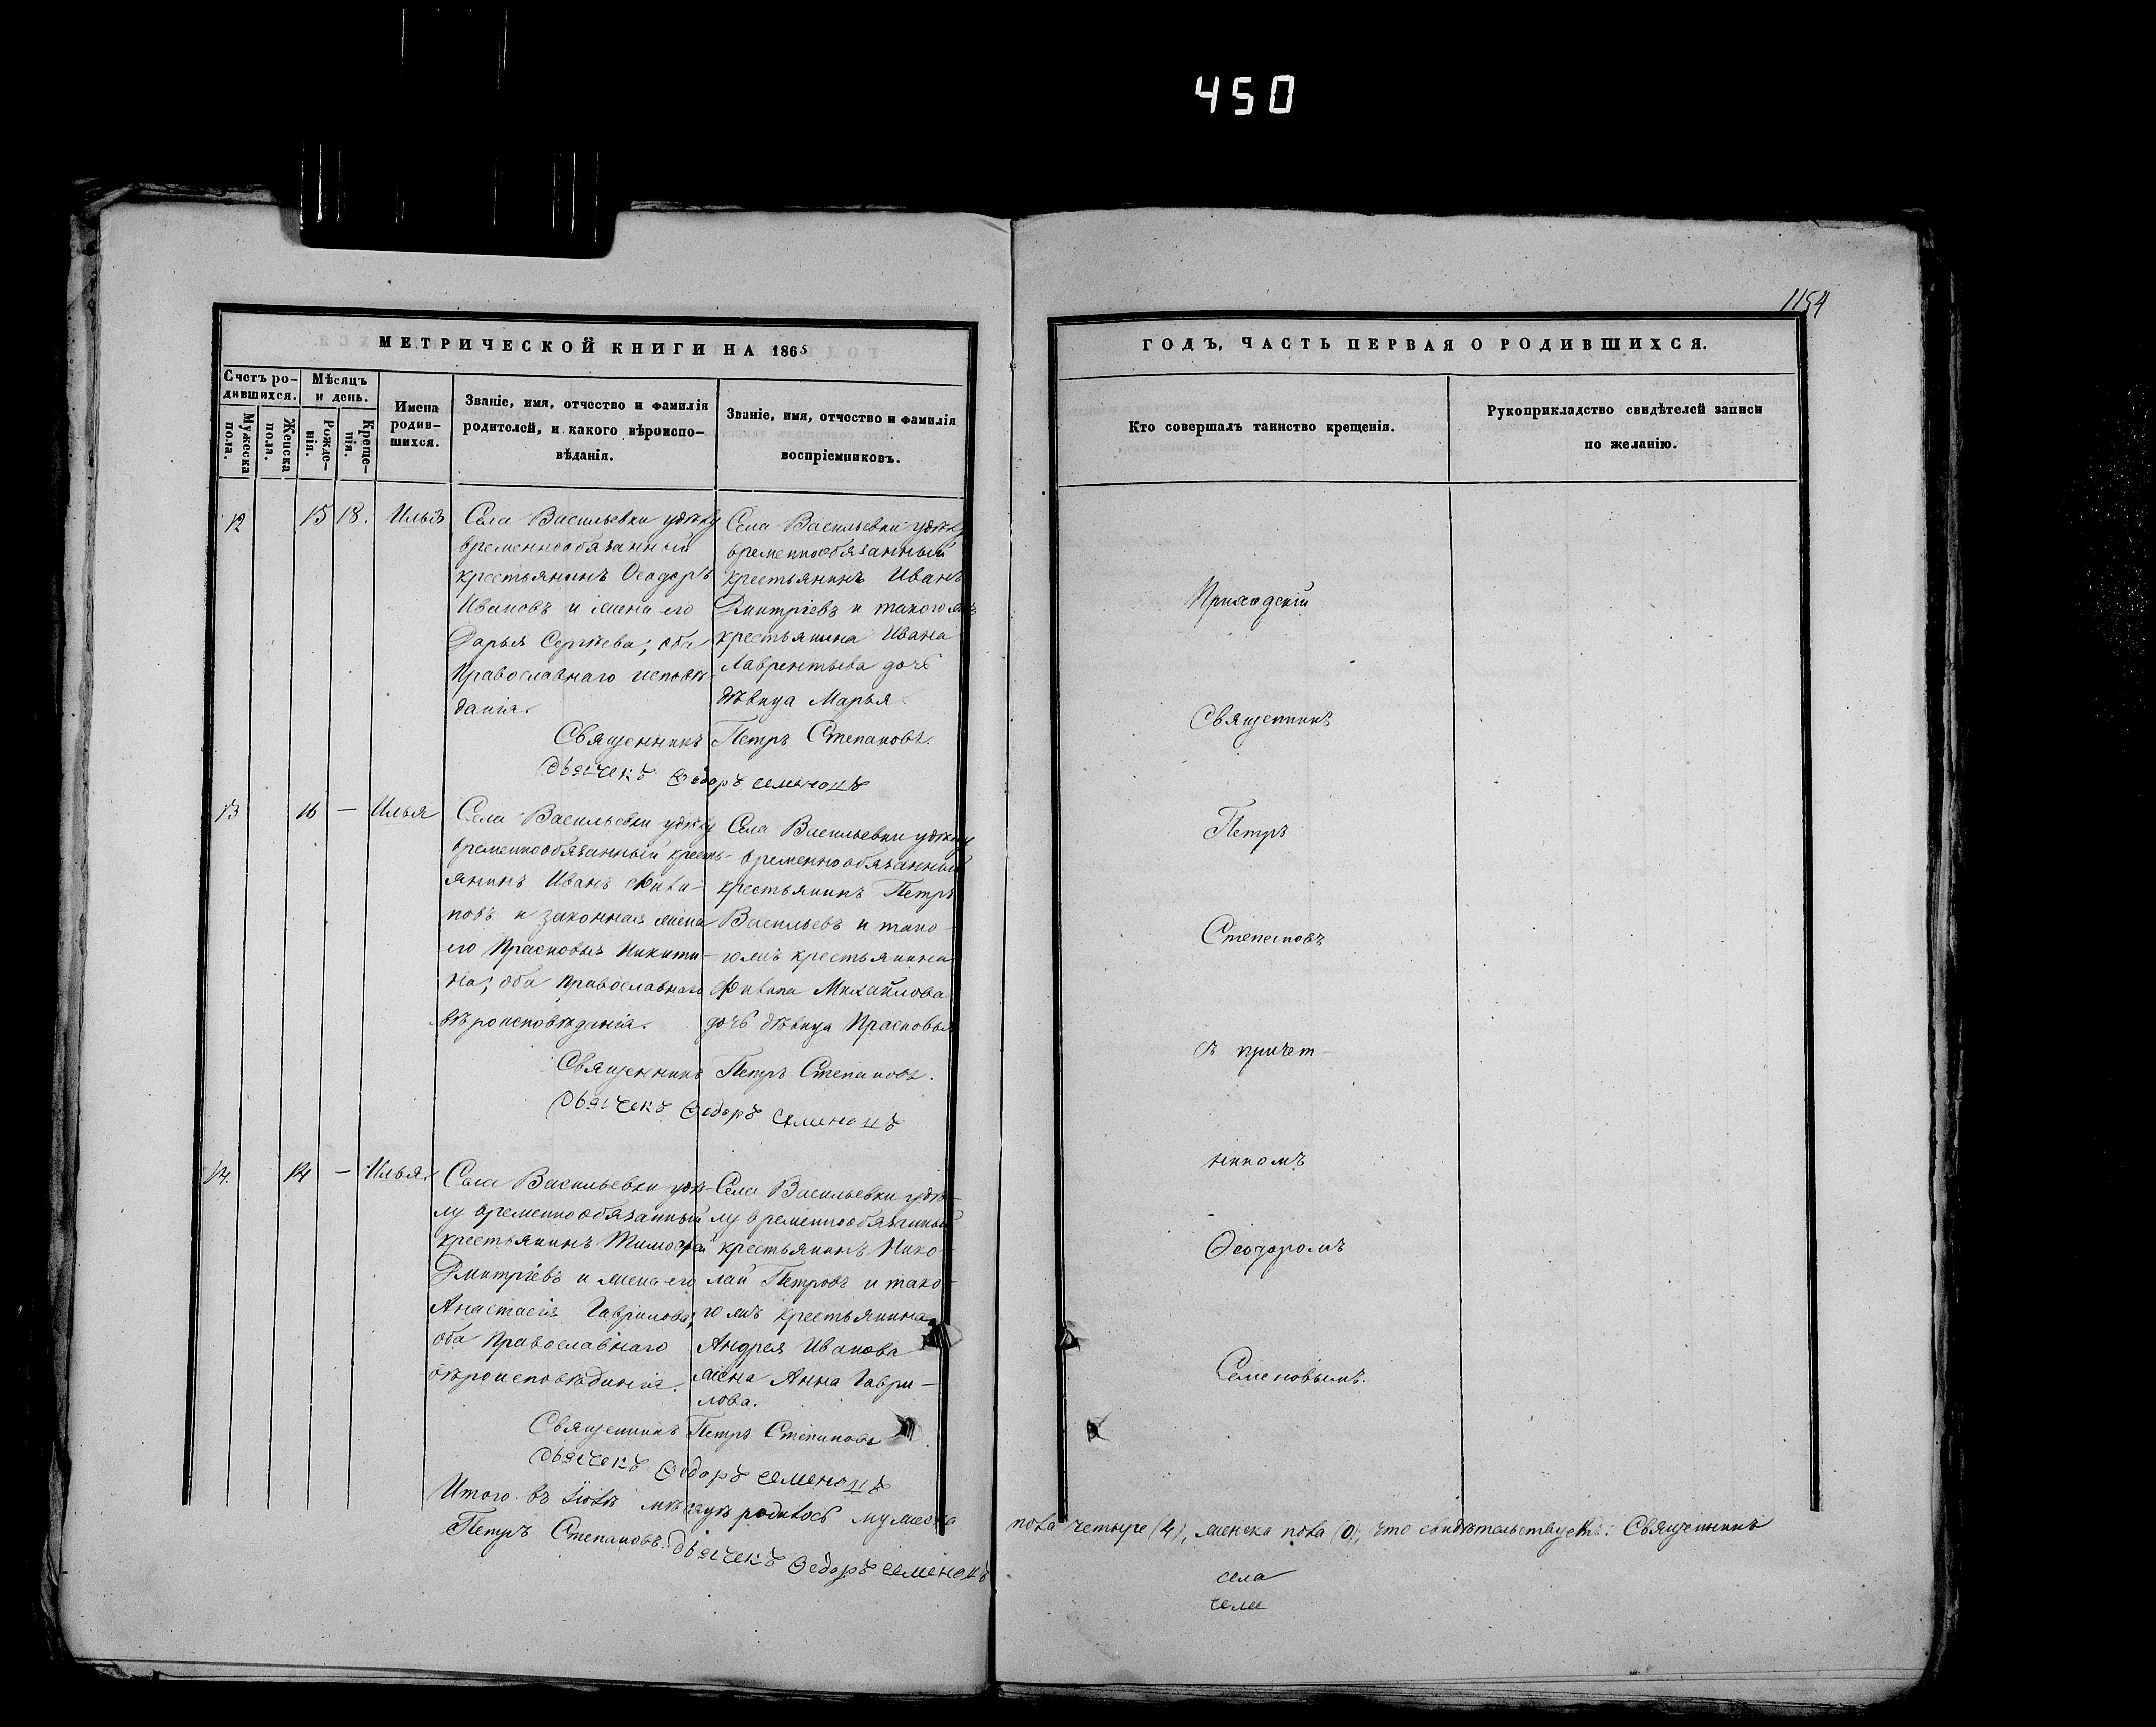 450
1154
МЕТРИЧЕСКОЙ КНИГИ НА 1865
Счетъ ро-
дившихся.
Мужеска
пола.
Женска
пола.
Мѣсяцъ
и день.
Рожде-
нія.
Креще-
нія.
Имена
родив-
шихся.
Званіе, имя, отчество и фамилія
родителей, и какого вѣроиспо-
вѣданія.
Званіе, имя, отчество и фамилія
воспріемниковъ.
12
15 18.
Илья
Села Васильевки удѣлу
временнообязанный
крестьянинъ Ѳеодоръ
Ивановъ и жена его
Дарья Сергѣева; оба
Православнаго исповѣ-
данія.
Села Васильевки удѣлу
временнообязанный
крестьянинъ Иванъ
Дмитріевъ и такогожъ
крестьянина Ивана
Лаврентьева дочь
дѣвица Марья
Священникъ Петръ Степановъ.
Дьячекъ Ѳедоръ Семеновъ
13
16 —
Илья
Села Васильевки удѣлу
временнообязанный кресть-
янинъ Иванъ Филип-
повъ и законная жена
его Прасковья Никити-
на; оба Православнаго
вѣроисповѣданія.
Села Васильевки удѣлу
временнообязанный
крестьянинъ Петръ
Васильевъ и тако-
гожъ крестьянина
Филипа Михайлова
дочь дѣвица Прасковья
Священникъ Петръ Степановъ.
Дьячекъ Ѳедоръ Семеновъ
14.
—
Илья.
Села Васильевки удѣ-
лу временнообязанный
крестьянинъ Тимофей
Дмитріевъ и жена его
Анастасія Гаврилова;
оба Православнаго
вѣроисповѣданія.
Села Васильевки удѣ-
лу временнообязанный
крестьянинъ Нико-
лай Петровъ и тако-
гожъ крестьянина
Андрея Иванова
жена Анна Гаври-
лова.
Священникъ Петръ Степановъ
Дьячекъ Ѳедоръ Семеновъ
Итого въ Іюлѣ мѣсяцѣ родилось мужеска
Петръ Степановъ. Дьячекъ Ѳедоръ Семеновъ
ГОДЪ, ЧАСТЬ ПЕРВАЯ О РОДИВШИХСЯ.
Кто совершалъ таинство крещенія.
Рукоприкладство свидѣтелей записи
по желанію.
Приходскій
Священникъ
Петръ
Степановъ
съ причет-
никомъ
Ѳеодоромъ
Семеновымъ.
пола четыре (4), женска пола (0), что свидѣтельствуетъ: Священникъ
села